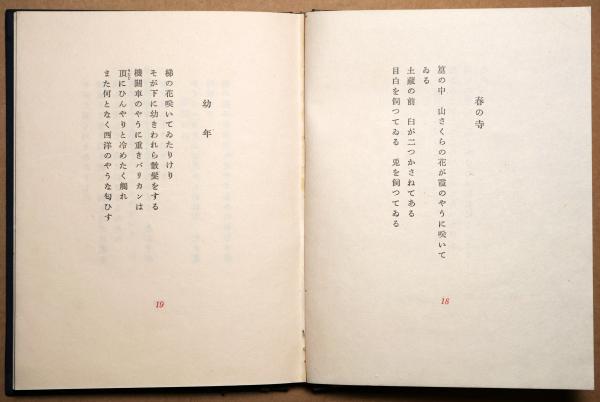 春の寺
墓の中　山さくらの花が霞のやうに咲いて
ゐる
土蔵の前　臼が二つかさねてある
目白を飼つてゐる　兎を飼つてゐる
18
幼年
梯の花咲いてゐたりけり
そが下に幼きわれら散髪をする
機關車のやうに重きバリカンは
頂にひんやりと冷めたく觸れ
また何となく西洋のやうな匂ひす
19